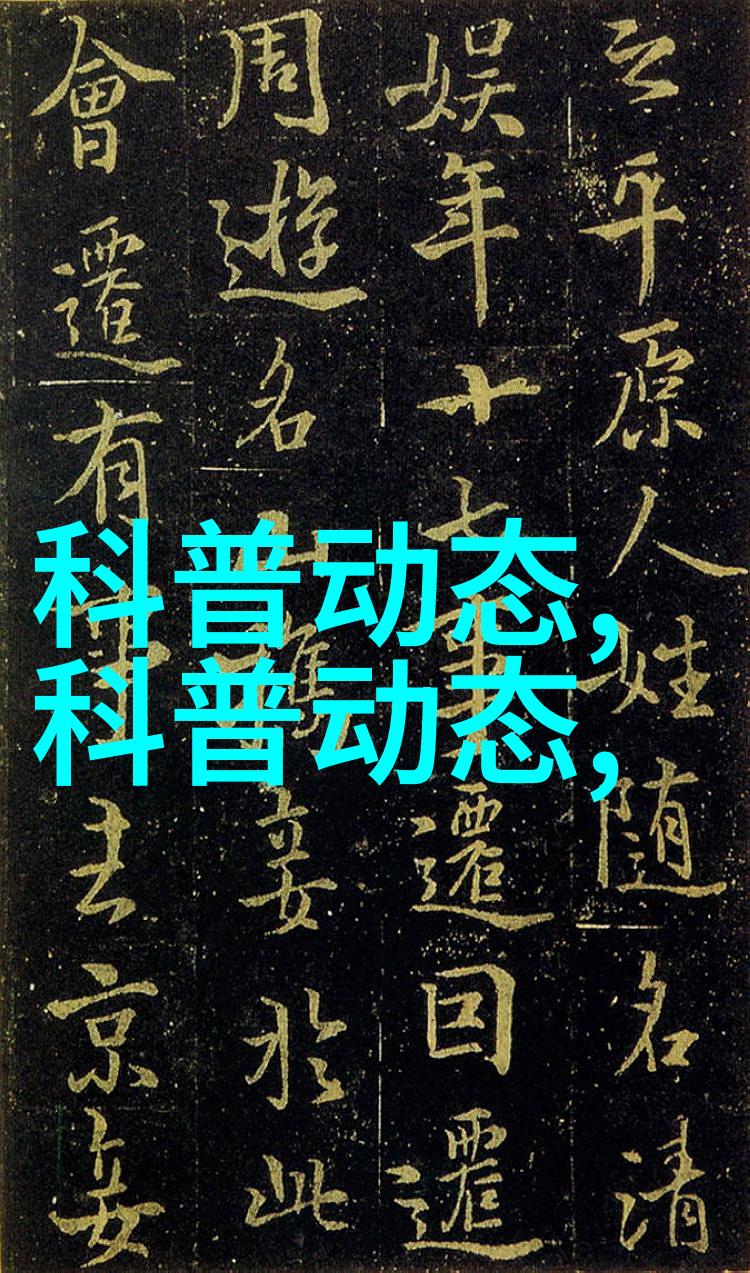 之平原人姓随名清
娱年十七事遷因遷
周遊名山攜妾於此
會遷有事去京妾
科普动态,
科普动态,